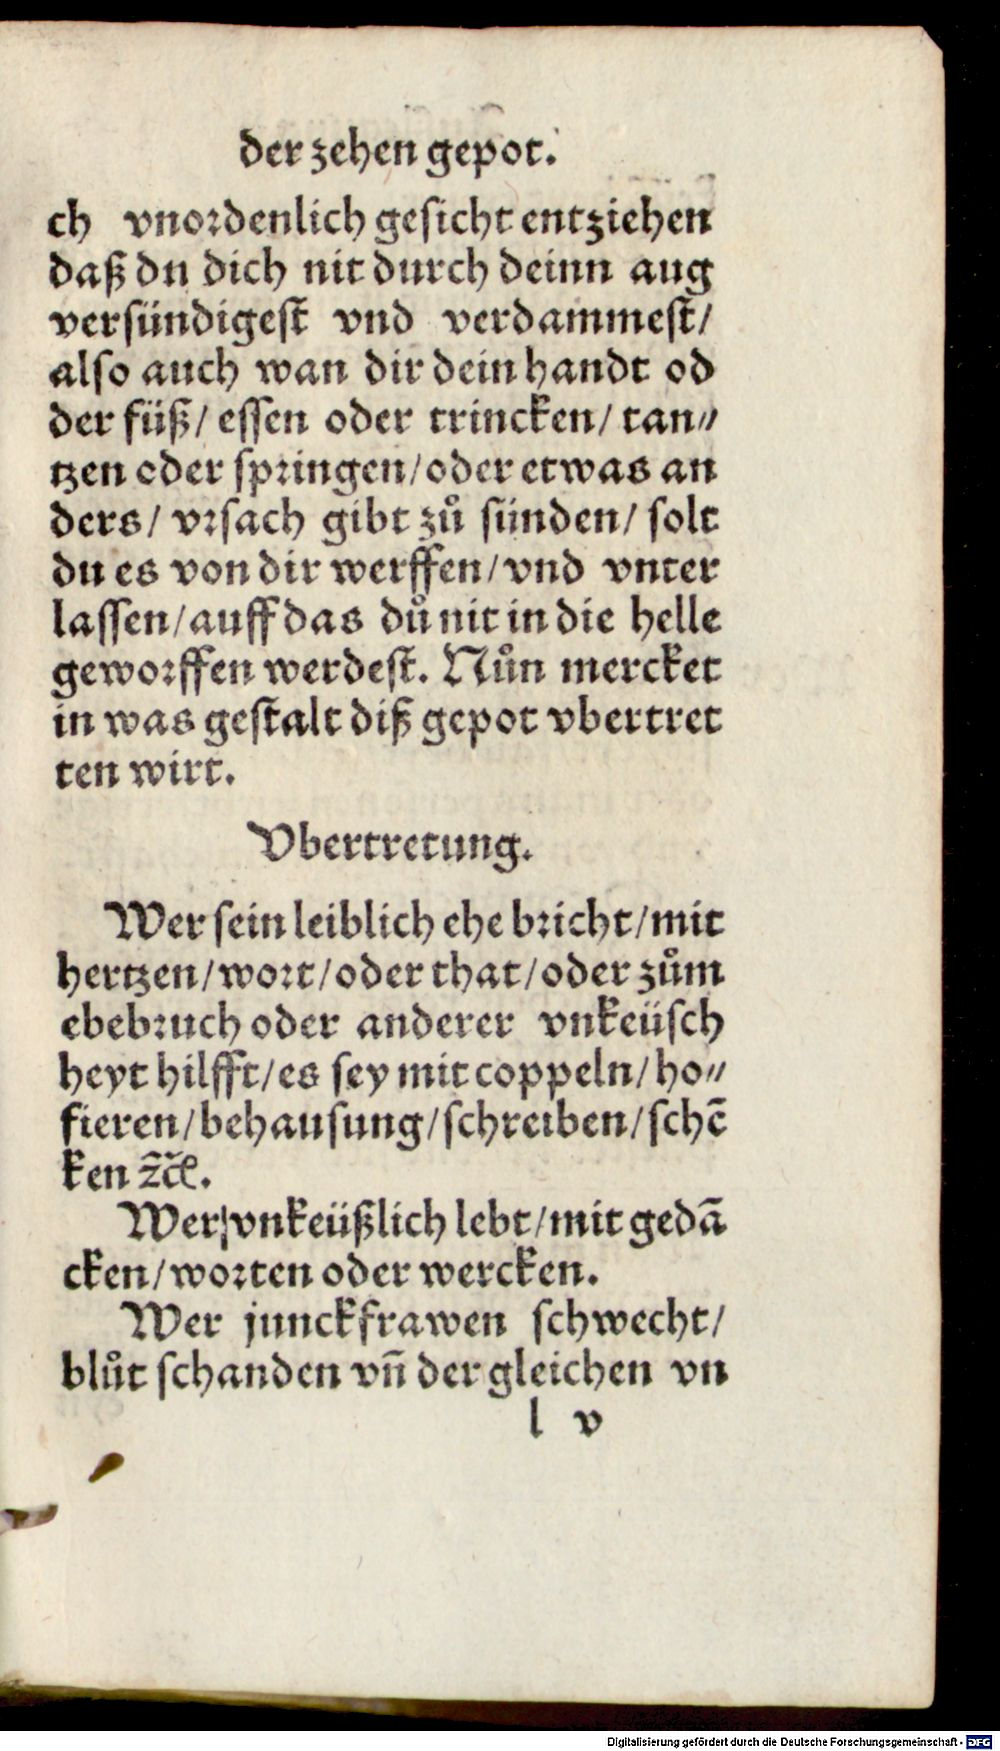 der zehen gepot.
ch vnordenlich gesicht entziehen
daß dn dich nit durch deinn aug
versündigest vnd verdammest/
also auch wan dir dein handt od
der füß/ essen oder trincken/ tan⸗
tzen oder springen/oder etwas an
ders/ vrsach gibt zů sünden/ solt
du es von dir werffen/vnd vnter
lassen/auff das dů nit in die helle
geworffen werdest. Nůn mercket
in was gestalt diß gepot vbertret
ten wirt.
Vbertretung.
Wer sein leiblich ehe bricht/mit
hertzen/wort/oder that/oder zům
ebebruch oder anderer vnkeüsch
heyt hilfft/es sey mit coppeln/ho⸗
fieren/behausung/schreiben/schē
ken ⁊c̃.
Wer vnkeüßlich lebt/mit gedā
cken/worten oder wercken.
Wer junckfrawen schwecht/
blůt schanden vñ der gleichen vn
l v
Digitalisierung gefördert durch die Deutsche Forschungsgemeinschaft - DFG